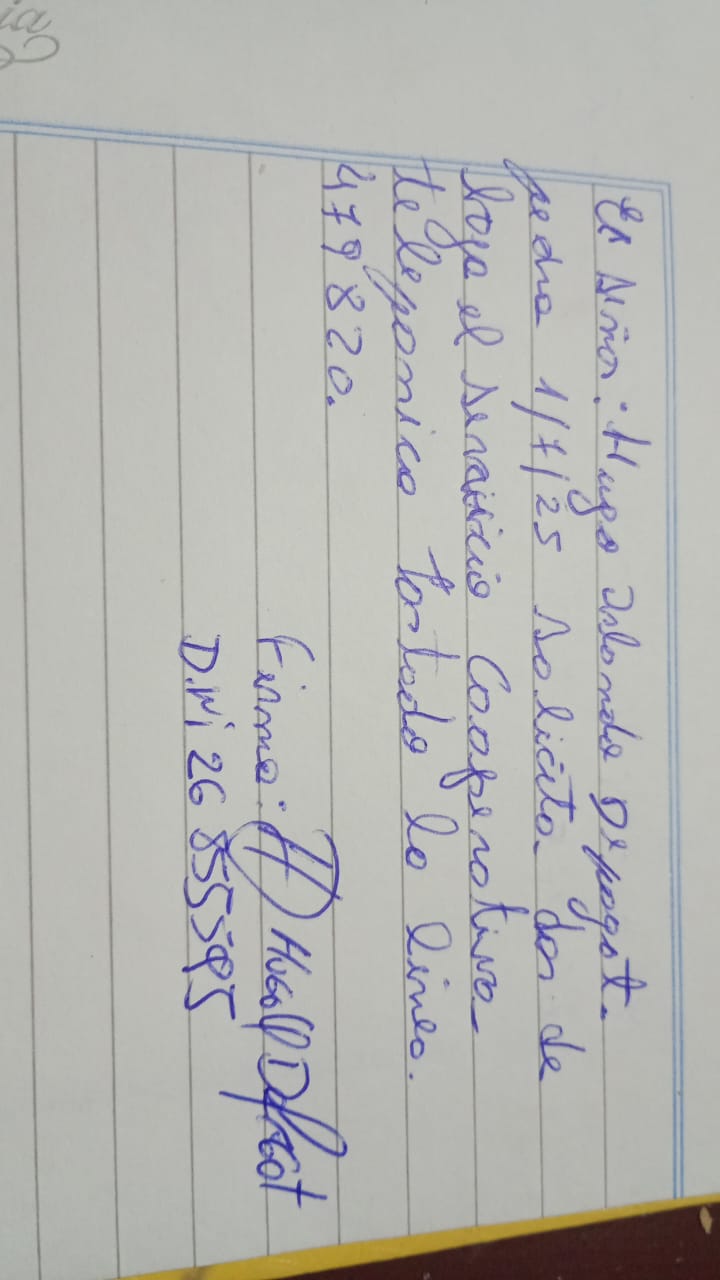 El Señor: Hugo Orlando Depogot.
fedra 1/7/25 Solicita dar de
baja el servicio Cooperativa
telefonica cortada la linea.
479820.
Firma: Hugo Defacot
D.Ni 26855595
ia